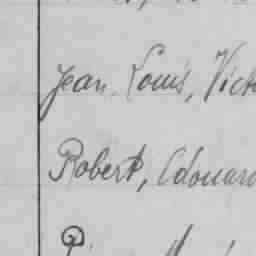 Jean, Louis, Vict
Robert, Edouard